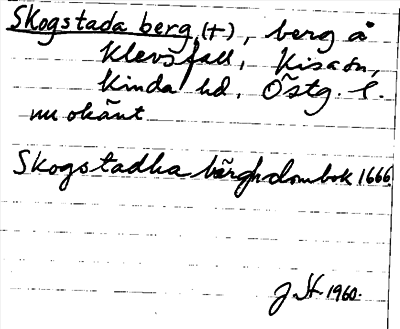 Skogstada berg (+), berg å
Klevsfall, Kisa sn,
Kinda hd. Östg. l.
nu okänt
Skogstadha bärgh dombok 1666
J. St 1960.